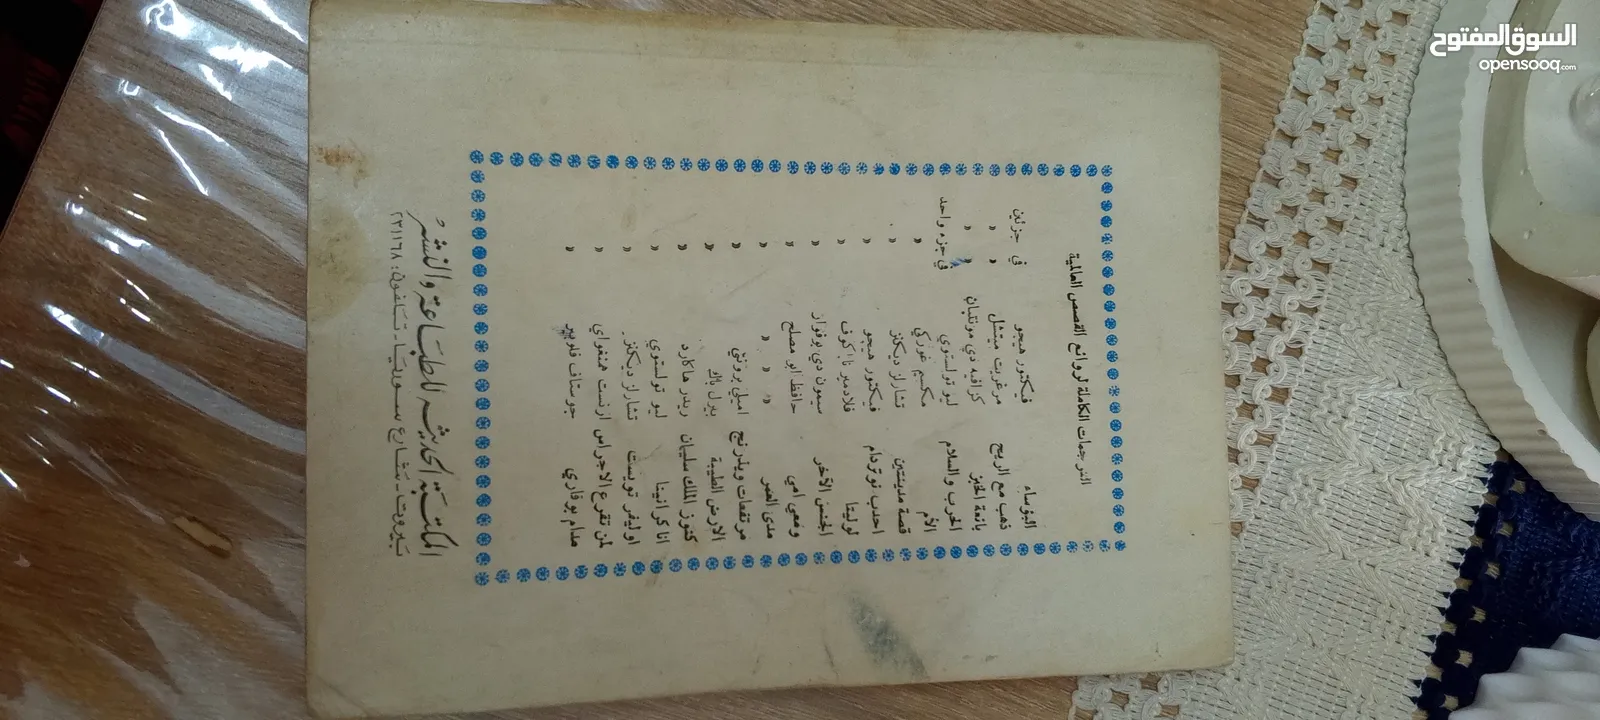 الترجمات الكاملة لروائع القصص العالمية
البؤساء فيكتور هيجو في جزئين
ذهب مع الريح مرغريت ميتشل » »
بائعة الخبز كزافيه دي مونتبان » »
الحرب والسلام ليو تولستوي في جزء واحد
الأم مكسيم غوركي »
قصة مدينتين تشارلز ديكنز »
احدب نوتردام فيكتور هيجو »
لوليتا فلاديمير نابوكوف »
الجنس الآخر سيمون دي بوفوار »
ومعي امي حافظ ابو مصلح »
مدى العمر » » »
مرتفعات ويذرنج اميلي برونتي »
الارض الطيبة بيرل باك »
كنوز الملك سليمان ريدر هاكارد »
انا كرانينا ليو تولستوي »
اوليفر تويست تشارلز ديكنز »
لمن تقرع الاجراس ارنست همنغواي »
مدام بوفاري جوستاف فلوبير »
المكتبة الحديثة للطباعة والنشر
بيروت - شارع سوريا - تلفون: ٢٣١١٦٨
السوق المفتوح
opensooq.com